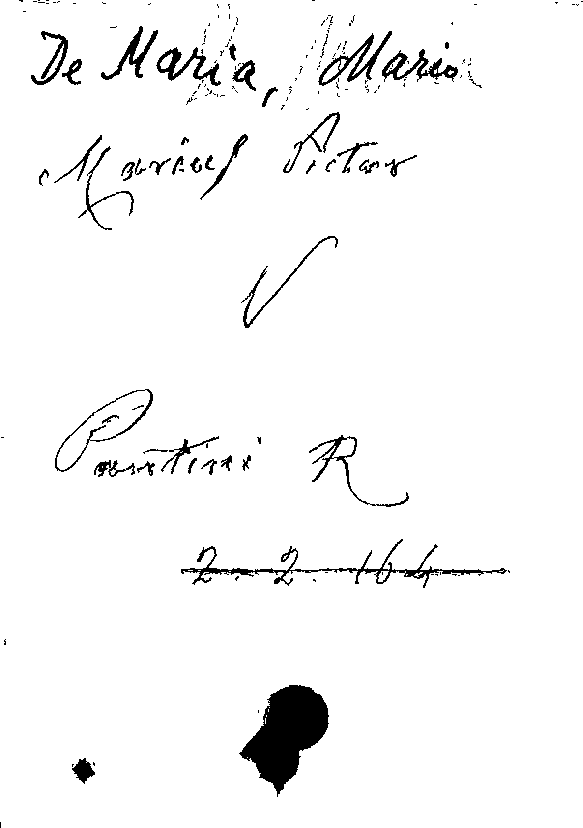 De Maria, Mario
Marius Pictor
V
Pantini R
2. 2. 164